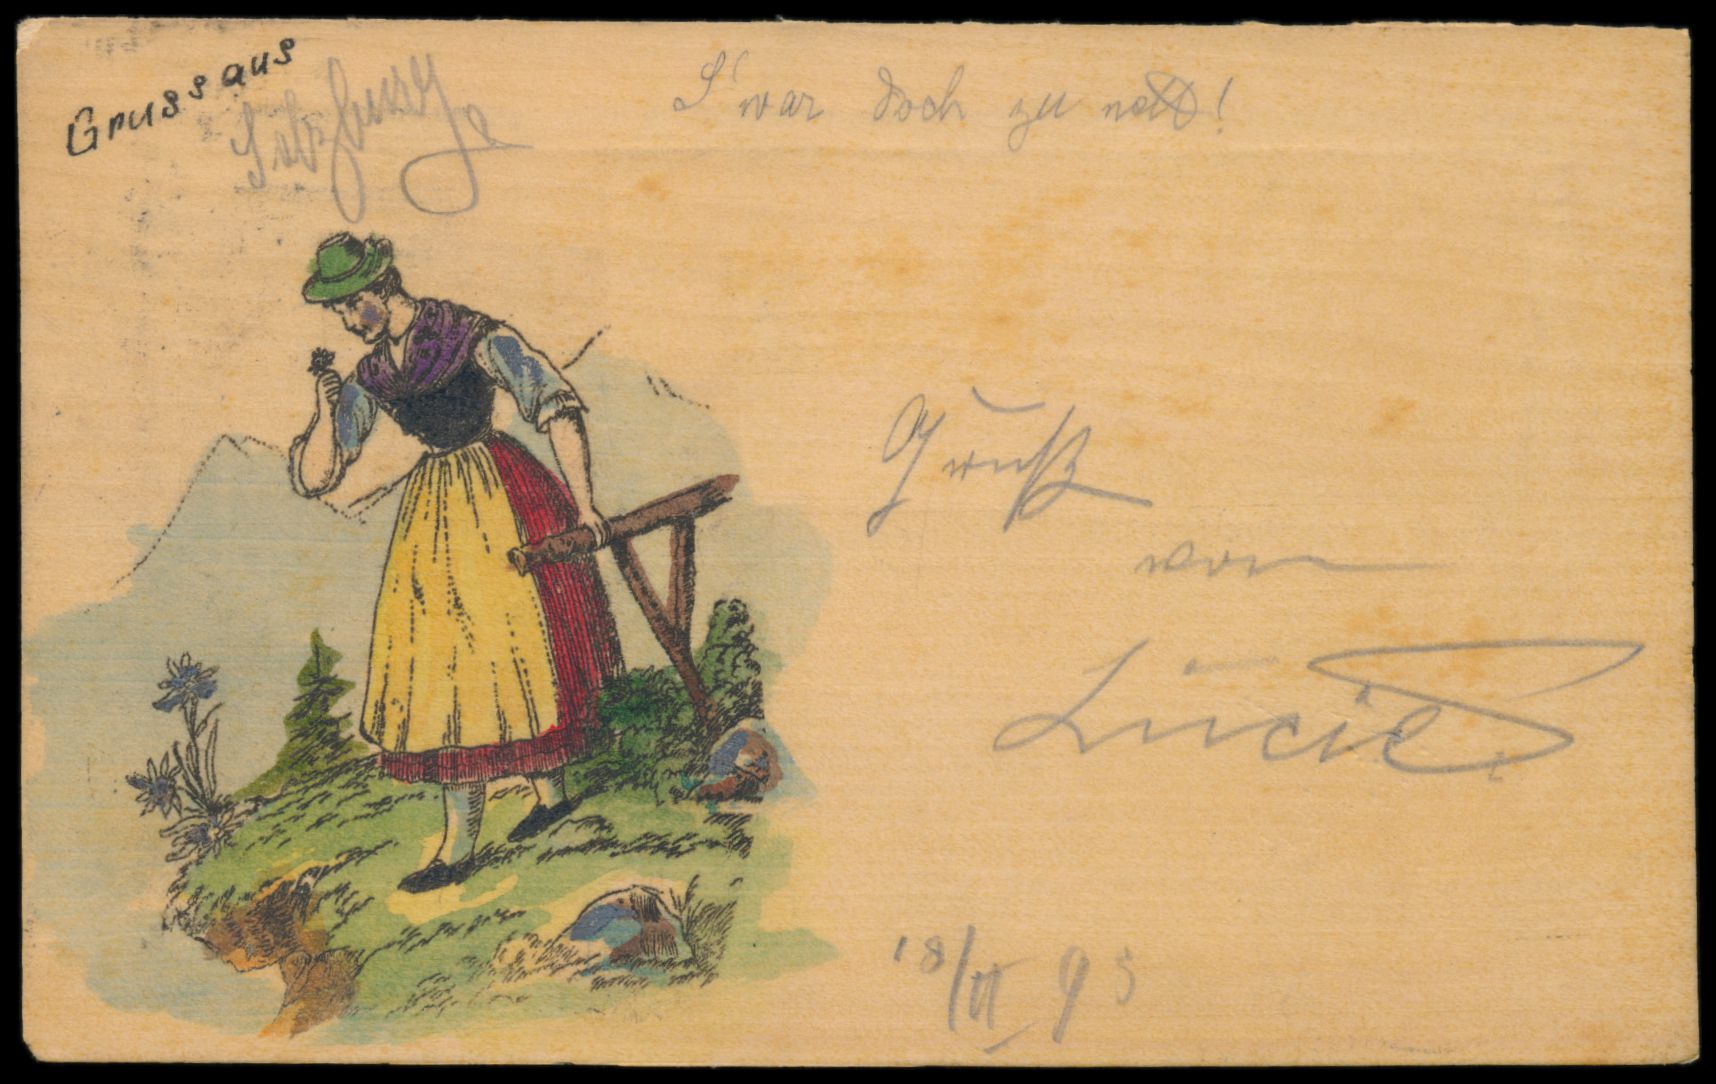 Gruss aus
Salzburg
S'war doch zu nett!
Gruß
von
Lucie
18/VI 98